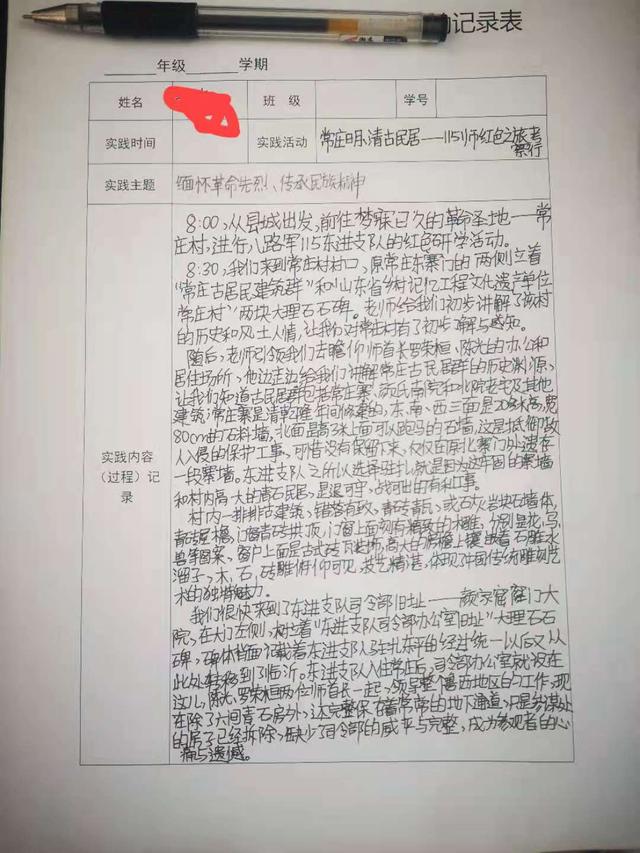 记录表
年级 学期
姓名 班级 学号
实践时间 实践活动 常庄明清古民居——115师红色之旅考察行
实践主题 缅怀革命先烈、传承民族精神
实践内容（过程）记录
8:00,从县城出发,前往梦寐已久的革命圣地——常
庄村,进行八路军115东进支队的红色研学活动。
8:30,我们来到常庄村村口,原常庄东寨门的两侧立着
“常庄古居民建筑群”和“山东省乡村记忆工程文化遗产单位
常庄村”两块大理石石碑。老师给我们初步讲解了该村
的历史和风土人情,让我们对常庄村有了初步了解与感知。
随后,老师引领我们去瞻仰师首长罗荣桓、陈光的办公和
居住场所,他边走边给我们讲解常庄古民居群的历史渊源,
让我们知道古民居群包括常庄寨、颜氏南院和北院老宅及其他
建筑:常庄寨是清乾隆年间修建的,东、南、西三面是 米高,宽
80cm的石料墙,北面是高3米上面可以跑马的石墙,这是抵御敌
人入侵的保护工事,可惜没有保留下来,仅仅在原北寨门外遗存
一段寨墙。东进支队之所以选择驻扎就是因为这牢固的寨墙
和村内高大的青石民居,是退可守,战可出的有利工事。
村内一排排古建筑,错落有致,青砖青瓦,或石灰岩块石墙体,
青砖屋檐,门窗青砖拱顶,门窗上面刻有精致的木雕,分别显花,鸟,
兽等图案、窗户上面是古式砖瓦装饰,高大的房檐上镶嵌着石雕水
溜子,木,石,砖雕俯仰可见,技艺精湛,体现了中国传统雕刻艺
术的独特魅力。
我们很快来到了东进支队司令部旧址——颜家窟窿门大
院,在大门左侧,树立着“东进支队司令部办公室旧址”大理石石
碑,碑体背面记载着东进支队驻扎东平的经过统一以后又从
此处转移到了临沂。东进支队入住常庄后,司令部办公室就设在
这儿,陈光、罗荣桓两位师首长一起,领导整个鲁西地区的工作,现
在除了六间青石房外,还完整保存着常常的地下通道,只是参谋处
的房子已经拆除,缺少了司令部的威严与完整,成为参观者的心
痛与遗憾。